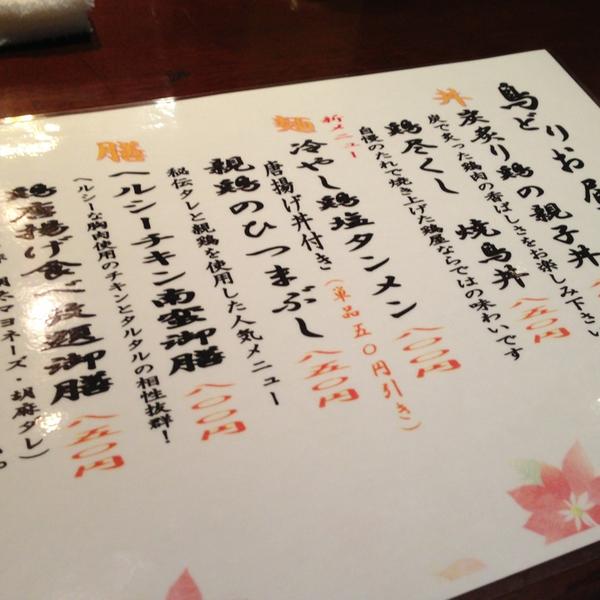 鳥どりお昼
丼
炭炙り鶏の親子丼
八五〇円
炭で炙った鶏肉の香ばしさをお楽しみ下さい
鶏尽くし 焼鳥丼
八五〇円
自慢のたれで焼き上げた鶏屋ならではの味わいです
新メニュー
麺
冷やし鶏塩タンメン
八〇〇円
唐揚げ丼付き
(単品五〇円引き)
親鶏のひつまぶし
八五〇円
秘伝タレと親鶏を使用した人気メニュー
膳
ヘルシーチキン南蛮御膳
八〇〇円
ヘルシーな胸肉使用のチキンとタルタルの相性抜群!
鶏唐揚げ食べ放題御膳
八五〇円
マヨネーズ・胡麻ダレ)